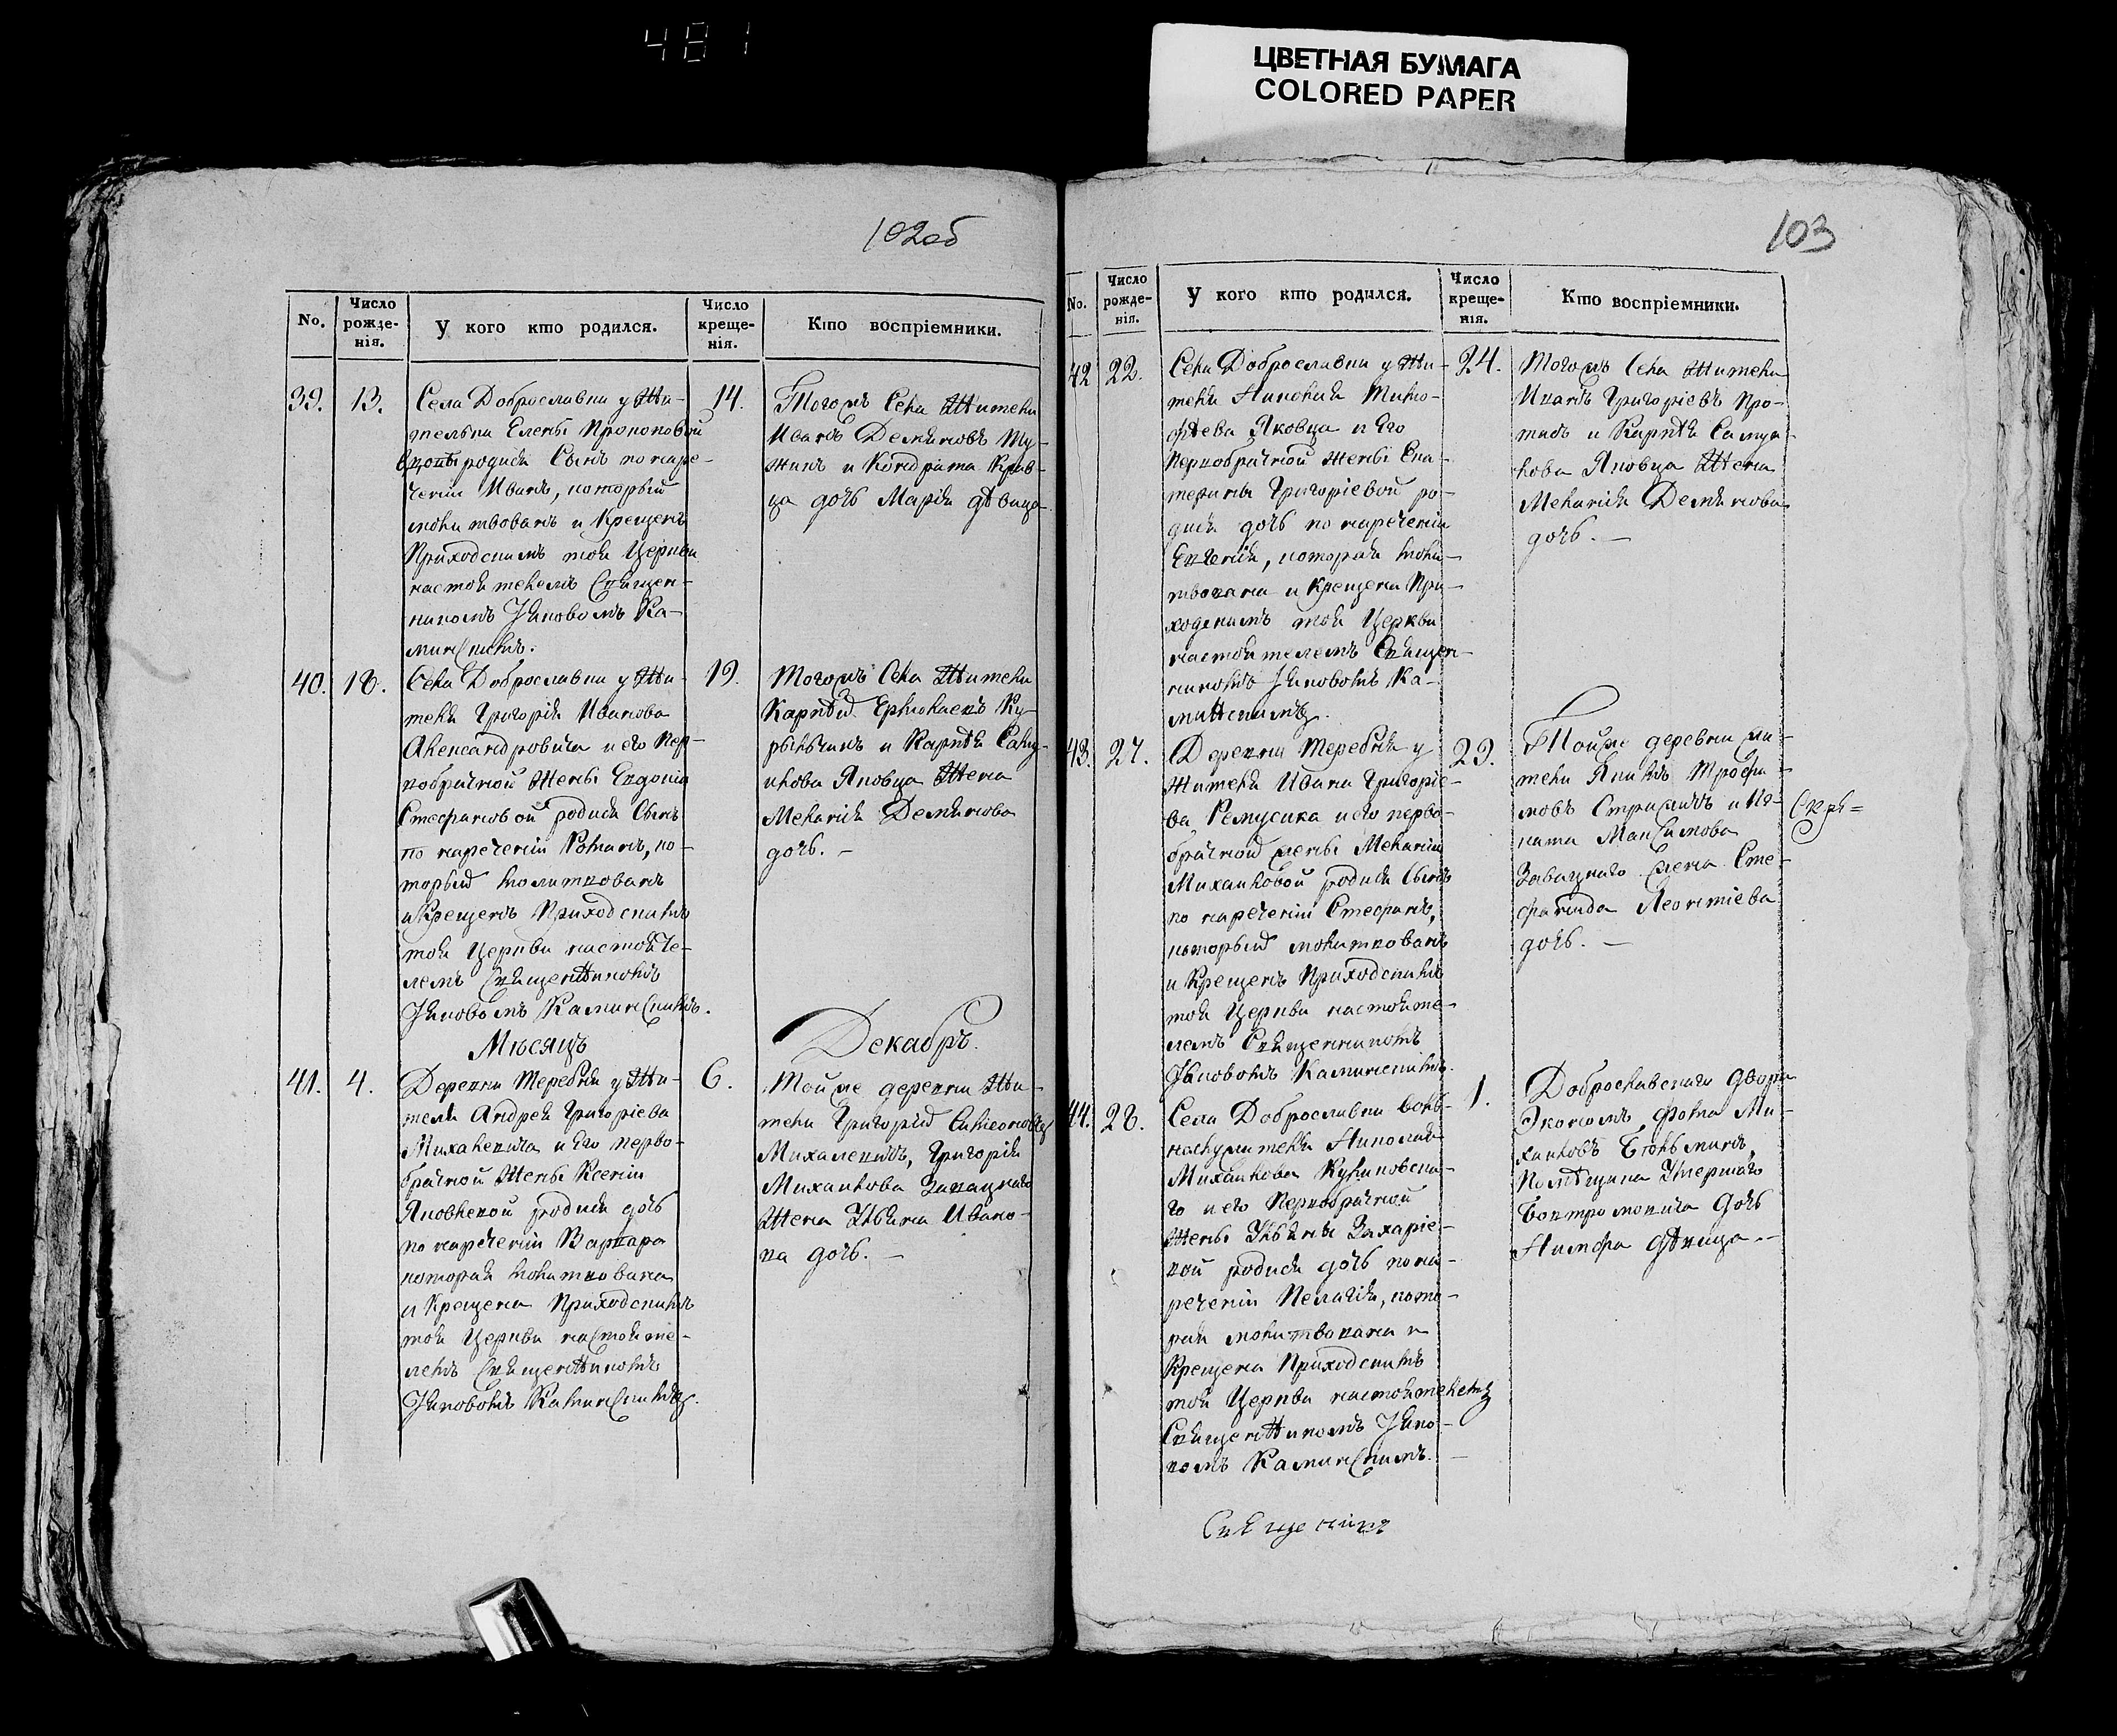 481
ЦВЕТНАЯ БУМАГА
COLORED PAPER
102об
No.
Число рожде-нія.
У кого кто родился.
Число креще-нія.
Кто воспріемники.
39.
13.
Села Доброславки у Жи-
тельки Елены Прокоповой
вдовы родися Сынъ по наре-
ченіи Иванъ, который
молитвованъ и Крещенъ
Приходскимъ тоя Церкви
настоятелемъ Священ-
никомъ Іяковомъ Ка-
минскимъ.
14.
Тогожъ Села Жители
Иванъ Демяновъ
и Кондрата Крав-
ца дочь Марія дѣвица
40.
18.
Села Доброславки у Жи-
теля Григорія Иванова
Александровича и его Пер-
вобрачной Жены Евдокіи
Стефановой родися Сынъ
по нареченіи Романъ, ко-
торый молитвованъ
и Крещенъ Приходскимъ
тоя Церкви настояте-
лемъ Священникомъ
Іяковомъ Каминскимъ.
19.
Тогожъ Села Жители
Карпъ Ермолаевъ
и Карпа Саму-
илова Яковца Жена
Меланія Демянова
дочь. —
Мѣсяцъ
Декабрь.
41.
4.
Деревни Теребня у Жи-
теля Андрея Григоріева
Михалевича и Его перво-
брачной Жены Ксеніи
Яковлевой родися дочь
по нареченіи Варвара
которая молитвована
и Крещена Приходскимъ
тоя Церкви настояте-
лемъ Священникомъ
Іяковомъ Каминскимъ.
6.
Тойже деревни Жи-
тели Григорій Симеоновъ
Михалевичъ, Григорія
Михайлова Завацкаго
Жена Ульяна Ивано-
ва дочь. —
103
No.
Число рожде-нія.
У кого кто родился.
Число креще-нія.
Кто воспріемники.
42
22.
Села Доброславки у Жи-
теля Николая Тимо-
фѣева Яковца и Его
Первобрачной Жены Ека-
терины Григоріевой ро-
дися дочь по нареченіи
Евгенія, которая моли-
твована и Крещена При-
ходскимъ тоя Церкви
настоятелемъ Священ-
никомъ Іяковомъ Ка-
минскимъ.
24.
Тогожъ Села Жители
Иванъ Григоріевъ
и Карпа Самуи-
лова Яковца Жена
Меланія Демянова
дочь. —
43.
27.
Деревни Теребня у
Жителя Ивана Григоріе-
ва Ремусика и его перво-
брачной жены Меланіи
Михайловой родися Сынъ
по нареченіи Стефанъ,
который молитвованъ
и Крещенъ Приходскимъ
тоя Церкви настояте-
лемъ Священникомъ
Іяковомъ Каминскимъ.
29.
Тойже деревни жи-
тели Якимъ Трофи-
мовъ и Иг-
ната Максимова
Завацкаго жена Сте-
фанида Леонтіева
дочь. —
44.
28.
Села Доброславки воль-
наго жителя Николая
Михайлова Куликовска-
го и его Первобрачной
Жены Ульяны Захаріе-
вой родися дочь по на-
реченіи Пелагія, кото-
рая молитвована и
Крещена Приходскимъ
тоя Церкви настоятелемъ
Священникомъ Іяко-
вомъ Каминскимъ. —
1.
Доброславскаго двора
Экономъ Фома Ми-
хайловъ
Помѣщика Умершаго
дочь
Нимфа дѣвица. —
Священникъ